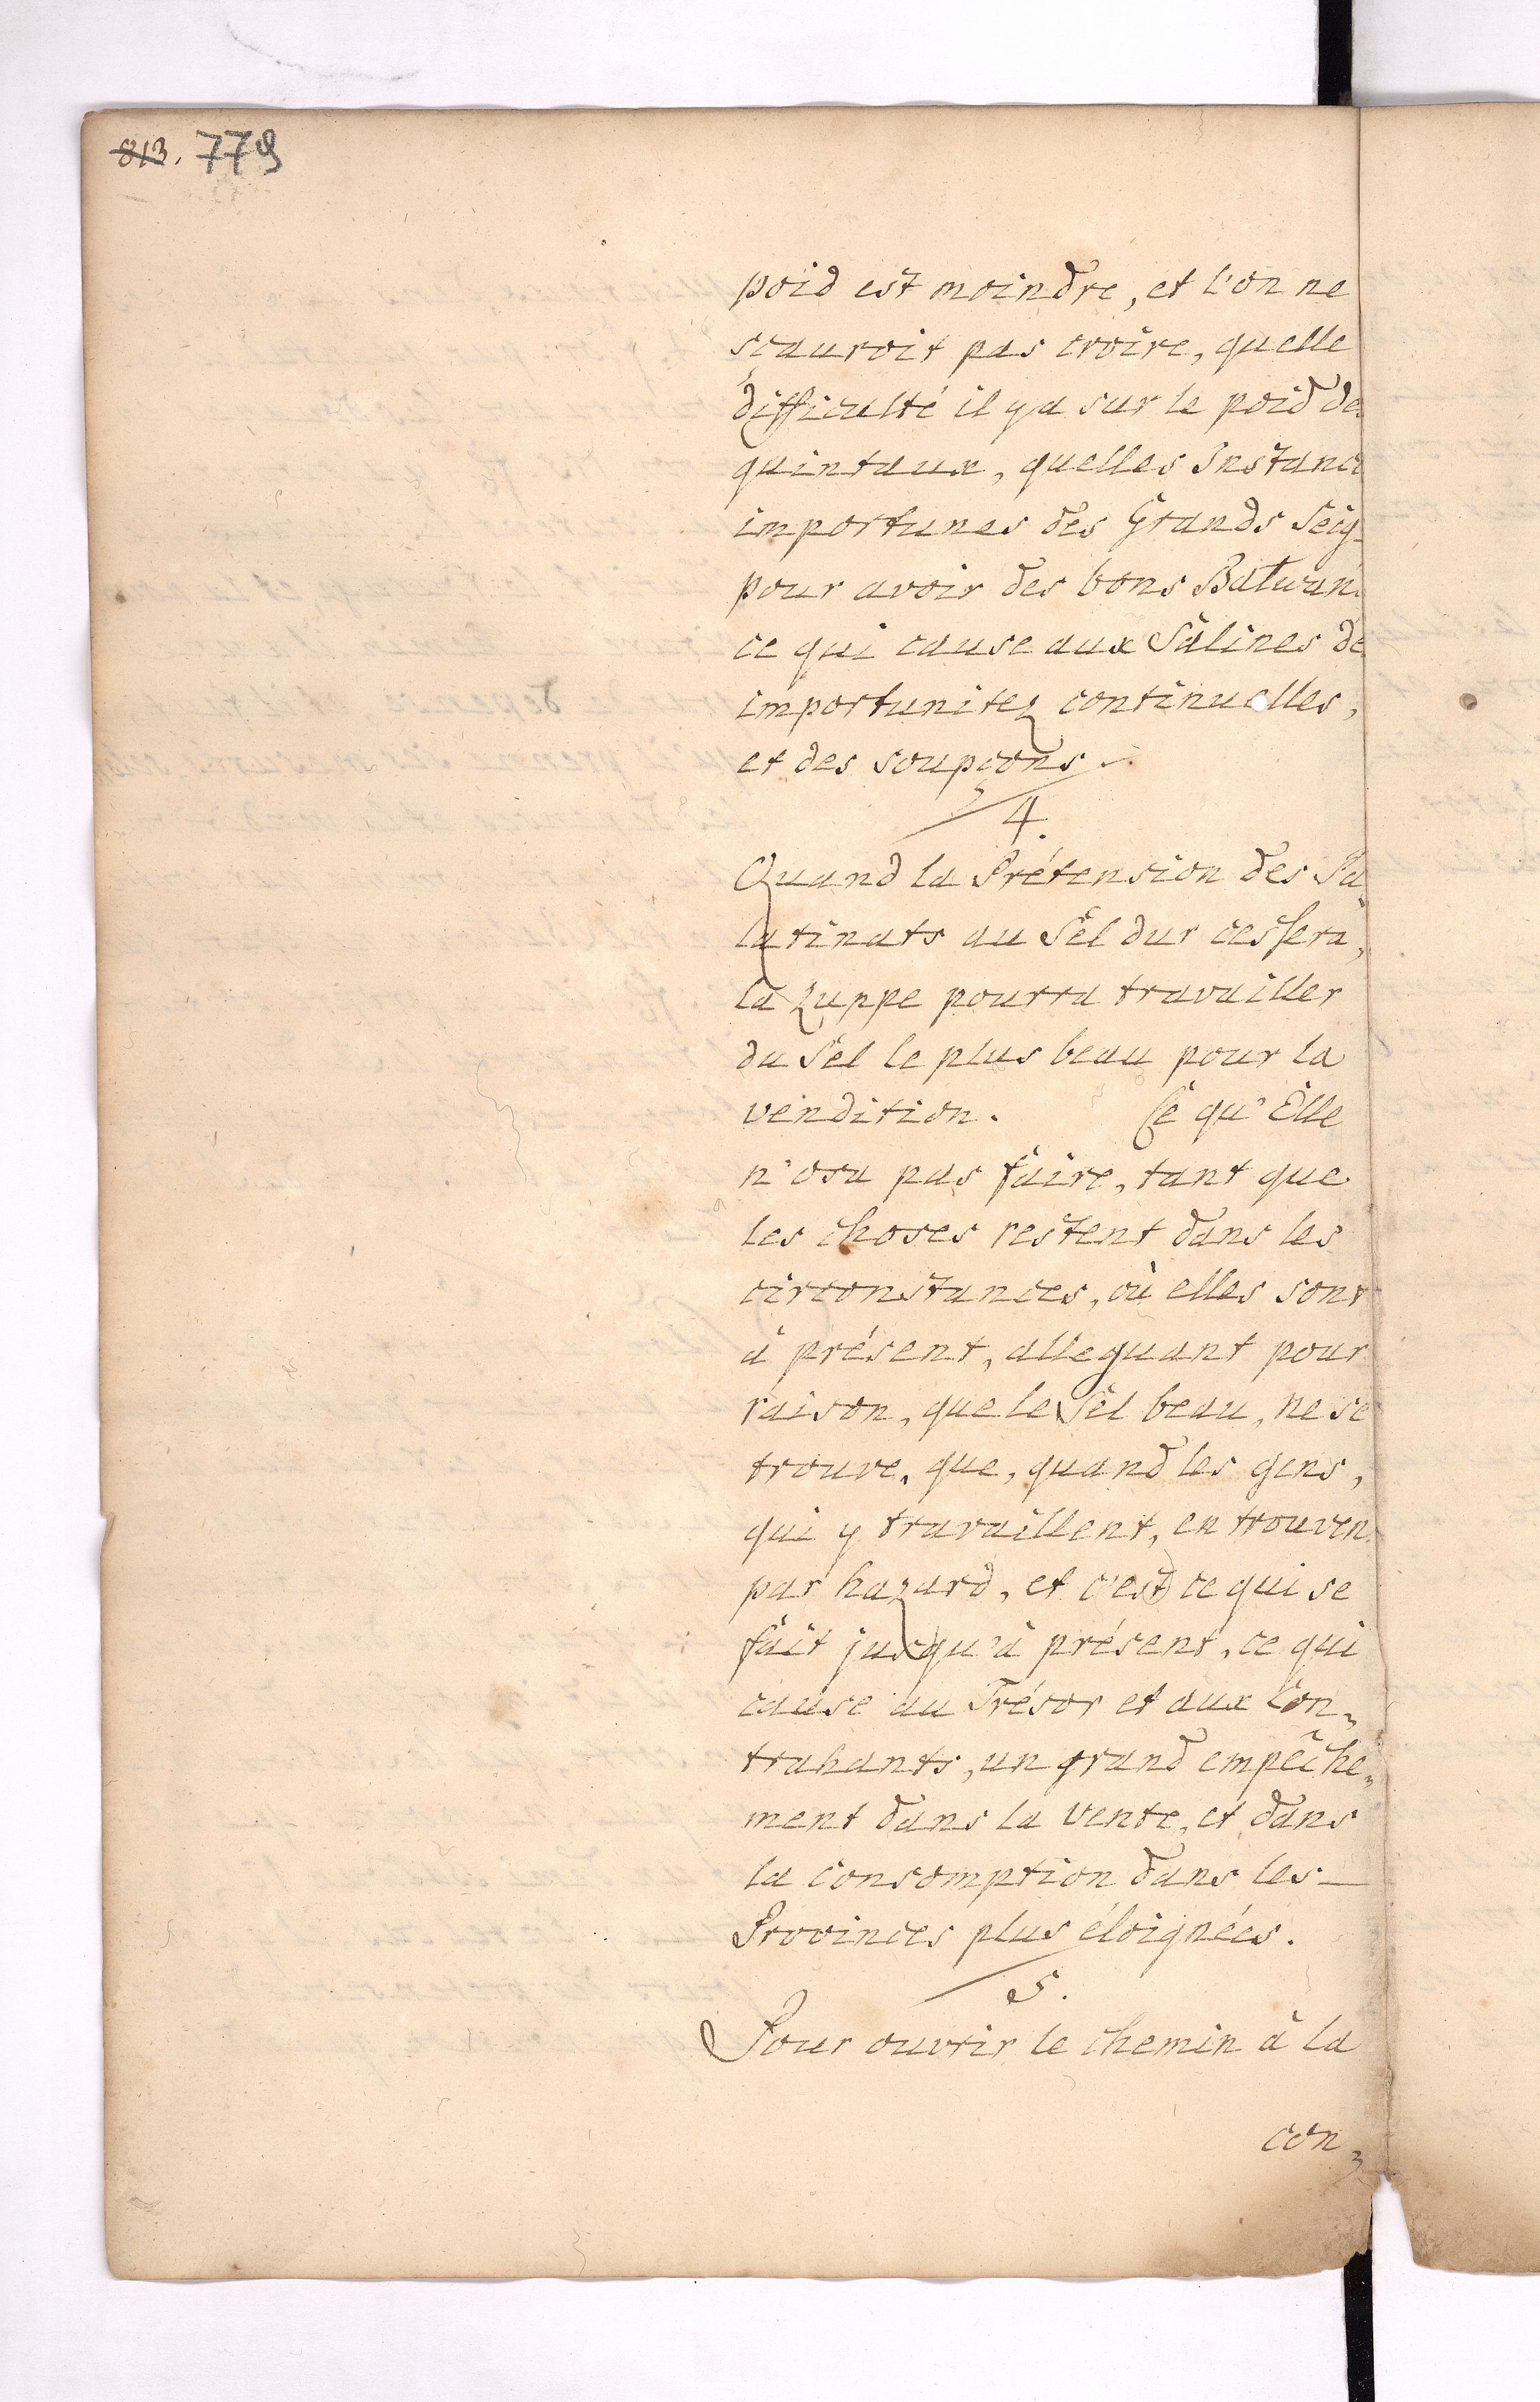 813. 779
poid est moindre, et l'on ne
sçauroit pas croire, quelle
difficulté il y a sur le poid de
quintaux, quelles Instance
importunes des Grands Seig
pour avoir des bons Bałwan
ce qui cause aux Salines de
importunitez continuelles,
et des soupçons.
4.
Quand la Prétension des Pa
latinats au Sel dur cessera,
la Zuppe pourra travailler
du Sel le plus beau pour la
vendition. Ce qu'Elle
n'osa pas faire, tant que
les choses restent dans les
circonstances, où elles sont
à présent, alleguant pour
raison, que le Sel beau, ne se
trouve, que, quand les gens,
qui y travaillent, en trouven
par hazard, et c'est ce qui se
fait jusqu'à présent, ce qui
cause au Trésor et aux Con„
trahants, un grand empêche„
ment dans la vente, et dans
la consomption dans les
Provinces plus éloignées.
5.
Pour ouvrir le chemin à la
con„